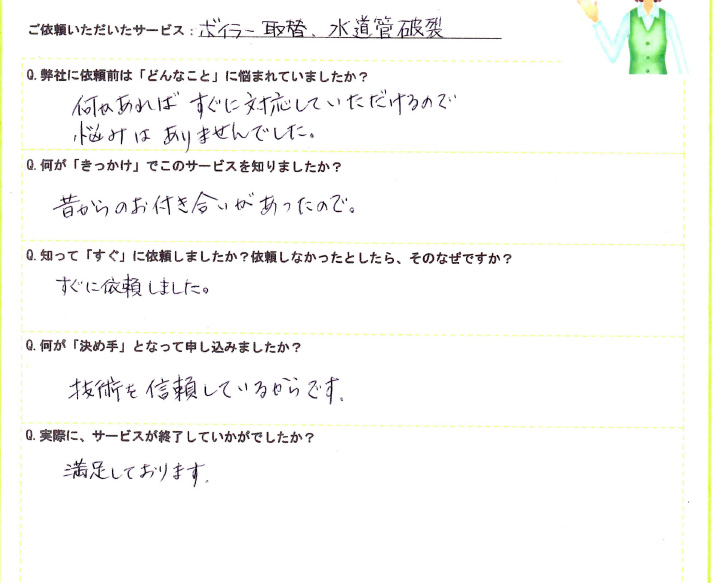 ご依頼いただいたサービス：ボイラー取替、水道管破裂
Q. 弊社に依頼前は「どんなこと」に悩まれていましたか？
何かあれば すぐに対応していただけるので
悩みは ありませんでした。
Q. 何が「きっかけ」でこのサービスを知りましたか？
昔からのお付き合いがあったので。
Q. 知って「すぐ」に依頼しましたか？依頼しなかったとしたら、そのなぜですか？
すぐに依頼しました。
Q. 何が「決め手」となって申し込みましたか？
技術を信頼しているからです。
Q. 実際に、サービスが終了していかがでしたか？
満足しております。